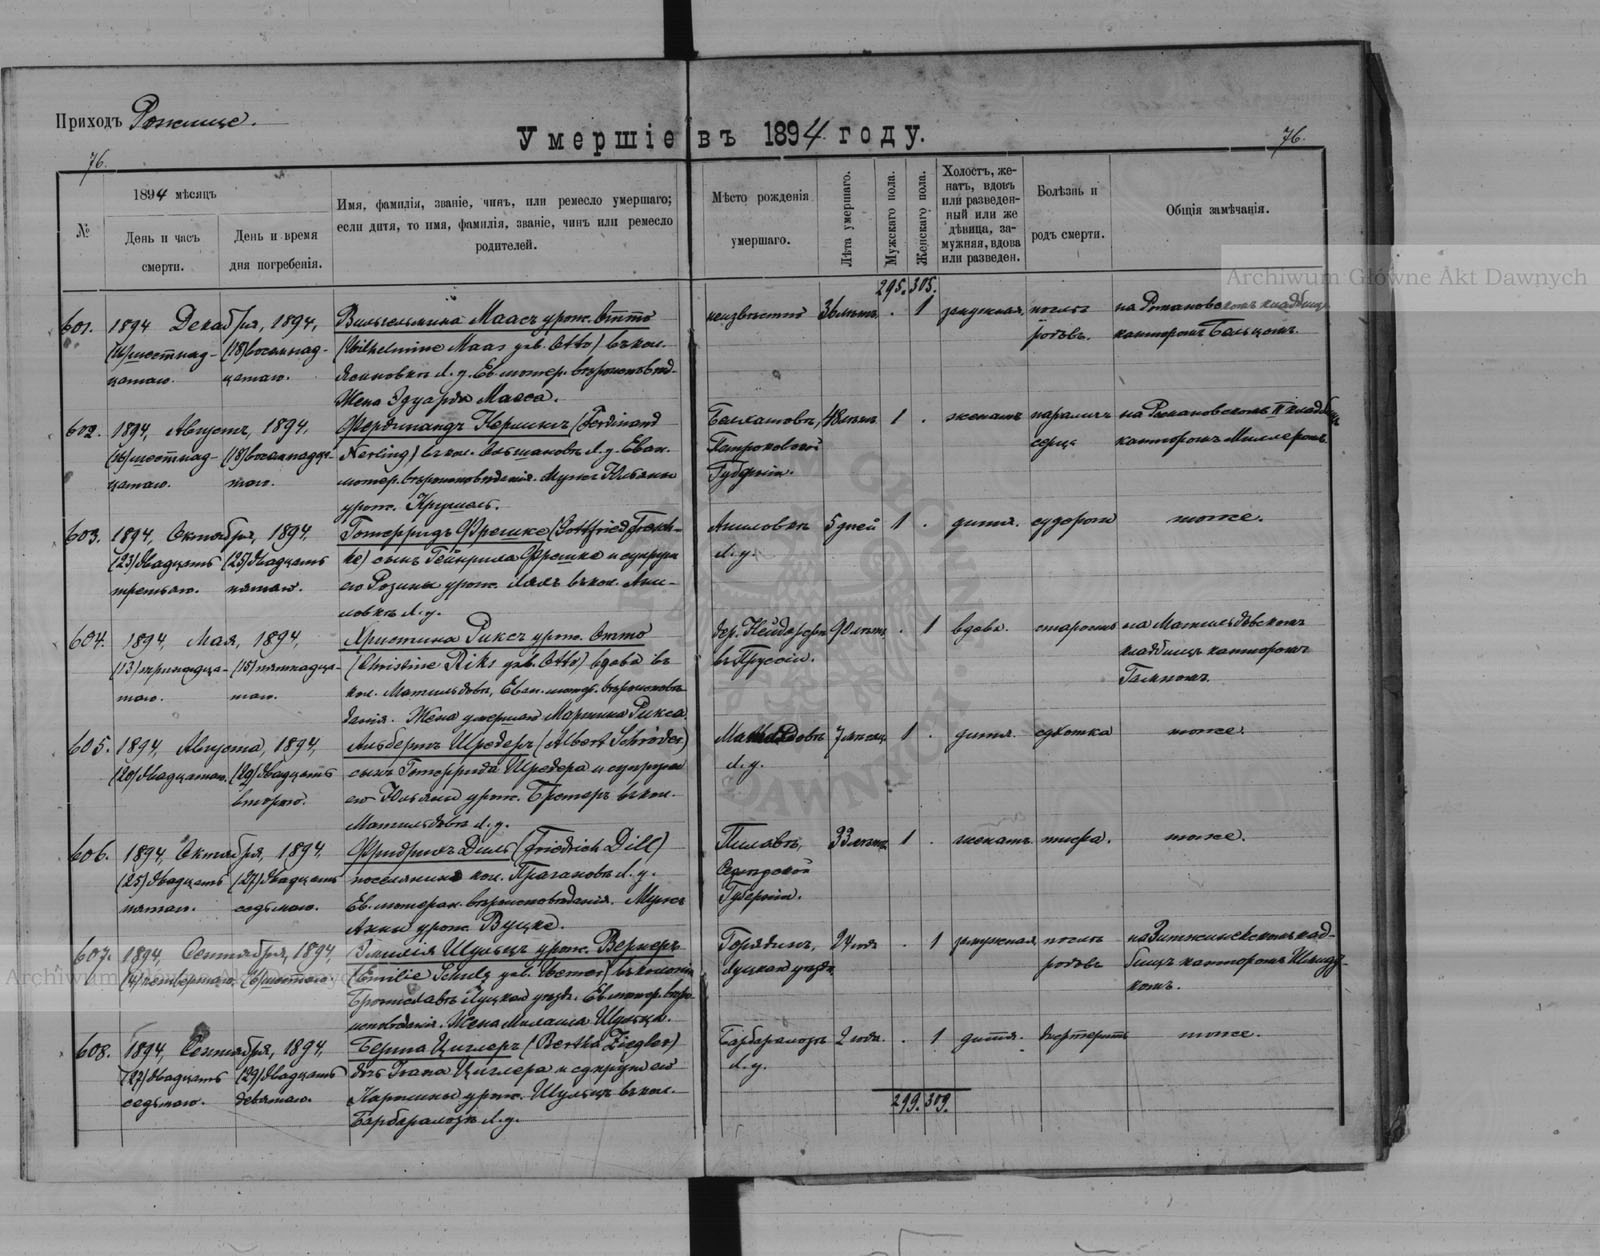 Приходъ Рожище.
Умершіе въ 1894 году.
76.
76.
№
1894 мѣсяцъ
День и часъ
смерти.
День и время
дня погребенія.
Имя, фамилія, званіе, чинъ, или ремесло умершаго;
если дитя, то имя, фамилія, званіе, чинъ или ремесло
родителей.
Мѣсто рожденія
умершаго.
Лѣта умершаго.
Мужскаго пола.
Женскаго пола.
Холостъ, же-
натъ, вдовъ
или разведен-
ный или же
дѣвица, за-
мужняя, вдова
или разведен.
Болѣзнь и
родъ смерти.
Общія замѣчанія.
295. 305.
601.
1894 Декабря, 1894,
(16) шестнад-
цатаго.
(18) восемнад-
цатаго.
Вильгельмина Маасъ урож. Отто
(Wilhelmine Maas geb. Otto) въ кол.
Яновкѣ Л. у. Ев. лютер.
Жена Эдуарда Мааса.
неизвѣстно
36 лѣтъ
. 1
замужняя
послѣ
родовъ.
на Романовскомъ кладбищѣ
канторомъ
602.
1894, Августъ, 1894,
(16) шестнад-
цатаго.
(18) восемнадца-
таго.
Фердинандъ Нерлингъ (Ferdinand
Nerling) въ кол. Ольшановкѣ Л. у. Еван.
лютер. вѣроисповѣданія. Мужъ Юльяны
урож.
Белхатовъ,
Петроковской
Губерніи.
48 лѣтъ
1 .
женатъ
параличъ
сердца
на Романовскомъ кладбищѣ
канторомъ Миллеромъ
603.
1894, Октября, 1894,
(23) двадцать
третьяго.
(25) двадцать
пятаго.
Готфридъ Фрешке (Gottfried Fresch-
ke) сынъ Гейнриха Фрешке и супруги
его Розины урож. въ кол. Ани-
ловкѣ Л. у.
Аниловкѣ
Л. у.
5 дней
1 .
дитя.
судороги
тоже.
604.
1894, Мая, 1894,
(13) тринадца-
таго.
(15) пятнадца-
таго.
Христина Риксъ урож. Отто
(Christine Riks geb. Otto) вдова въ
кол. Матильдовѣ, Еван. лютер. вѣроисповѣ-
данія. Жена умершаго Мартина Рикса.
дер. Нейдорфъ
въ Пруссіи.
90 лѣтъ
. 1
вдова.
старость
на Матильдовскомъ
кладбищѣ канторомъ
605.
1894, Августа, 1894,
(20) двадцатаго.
(22) двадцать
второго.
Альбертъ Шредеръ (Albert Schröder)
сынъ Готфрида Шредера и супруги
его Юльяны урож. въ кол.
Матильдовѣ Л. у.
Матильдовъ
Л. у.
7 мѣсяц.
1 .
дитя.
сухотка
тоже.
606.
1894, Октября, 1894,
(25) двадцать
пятаго.
(27) двадцать
седьмаго.
Фридрихъ Дилль (Friedrich Dill)
поселянинъ кол. Л. у.
Ев. лютеран. вѣроисповѣданія. Мужъ
Анны урож. Вуцке.
Губерніи.
33 лѣтъ
1 .
женатъ
тифа.
тоже.
607.
1894, Сентября, 1894,
(4) четвертаго.
(6) шестаго.
Эмилія Шульцъ урож. Вернеръ
(Emilie Schulz geb. Werner) въ колоніи
Брониславѣ Луцкой уѣзд. Ев. лютер. вѣро-
исповѣданія. Жена Шульца.
Горядинъ,
Луцкой уѣзда.
24 года
. 1
замужняя
послѣ
родовъ
на клад-
бищѣ канторомъ
608.
1894, Сентября, 1894,
(27) двадцать
седьмаго.
(29) двадцать
девятаго.
Берта Циглеръ (Bertha Ziegler)
дочь Ивана Циглера и супруги его
Каролины урож. Шульцъ въ кол.
Л. у.
Л. у.
2 года.
. 1
дитя.
дифтеритъ
тоже.
299. 309.
Archiwum Główne Akt Dawnych
Archiwum Główne Akt Dawnych